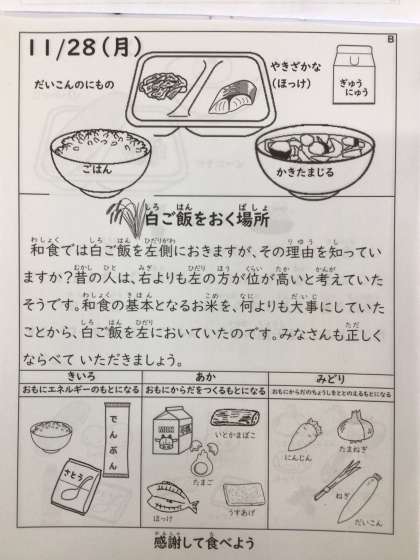 11/28(月)
B
だいこんのにもの
やきざかな
(ほっけ)
ぎゅう
にゅう
ごはん
かきたまじる
白ご飯をおく場所
和食では白ご飯を左側におきますが、その理由を知ってい
ますか?昔の人は、右よりも左の方が位が高いと考えていた
そうです。和食の基本となるお米を、何よりも大事にしていた
ことから、白ご飯を左においていたのです。みなさんも正しく
ならべて いただきましょう。
きいろ
おもにエネルギーのもとになる
あか
おもにからだをつくるもとになる
みどり
おもにからだのちょうしをととのえるもとになる
でんぷん
さとう
MILK
いとかまぼこ
たまご
ほっけ
うすあげ
にんじん
たまねぎ
ねぎ
だいこん
感謝して食べよう